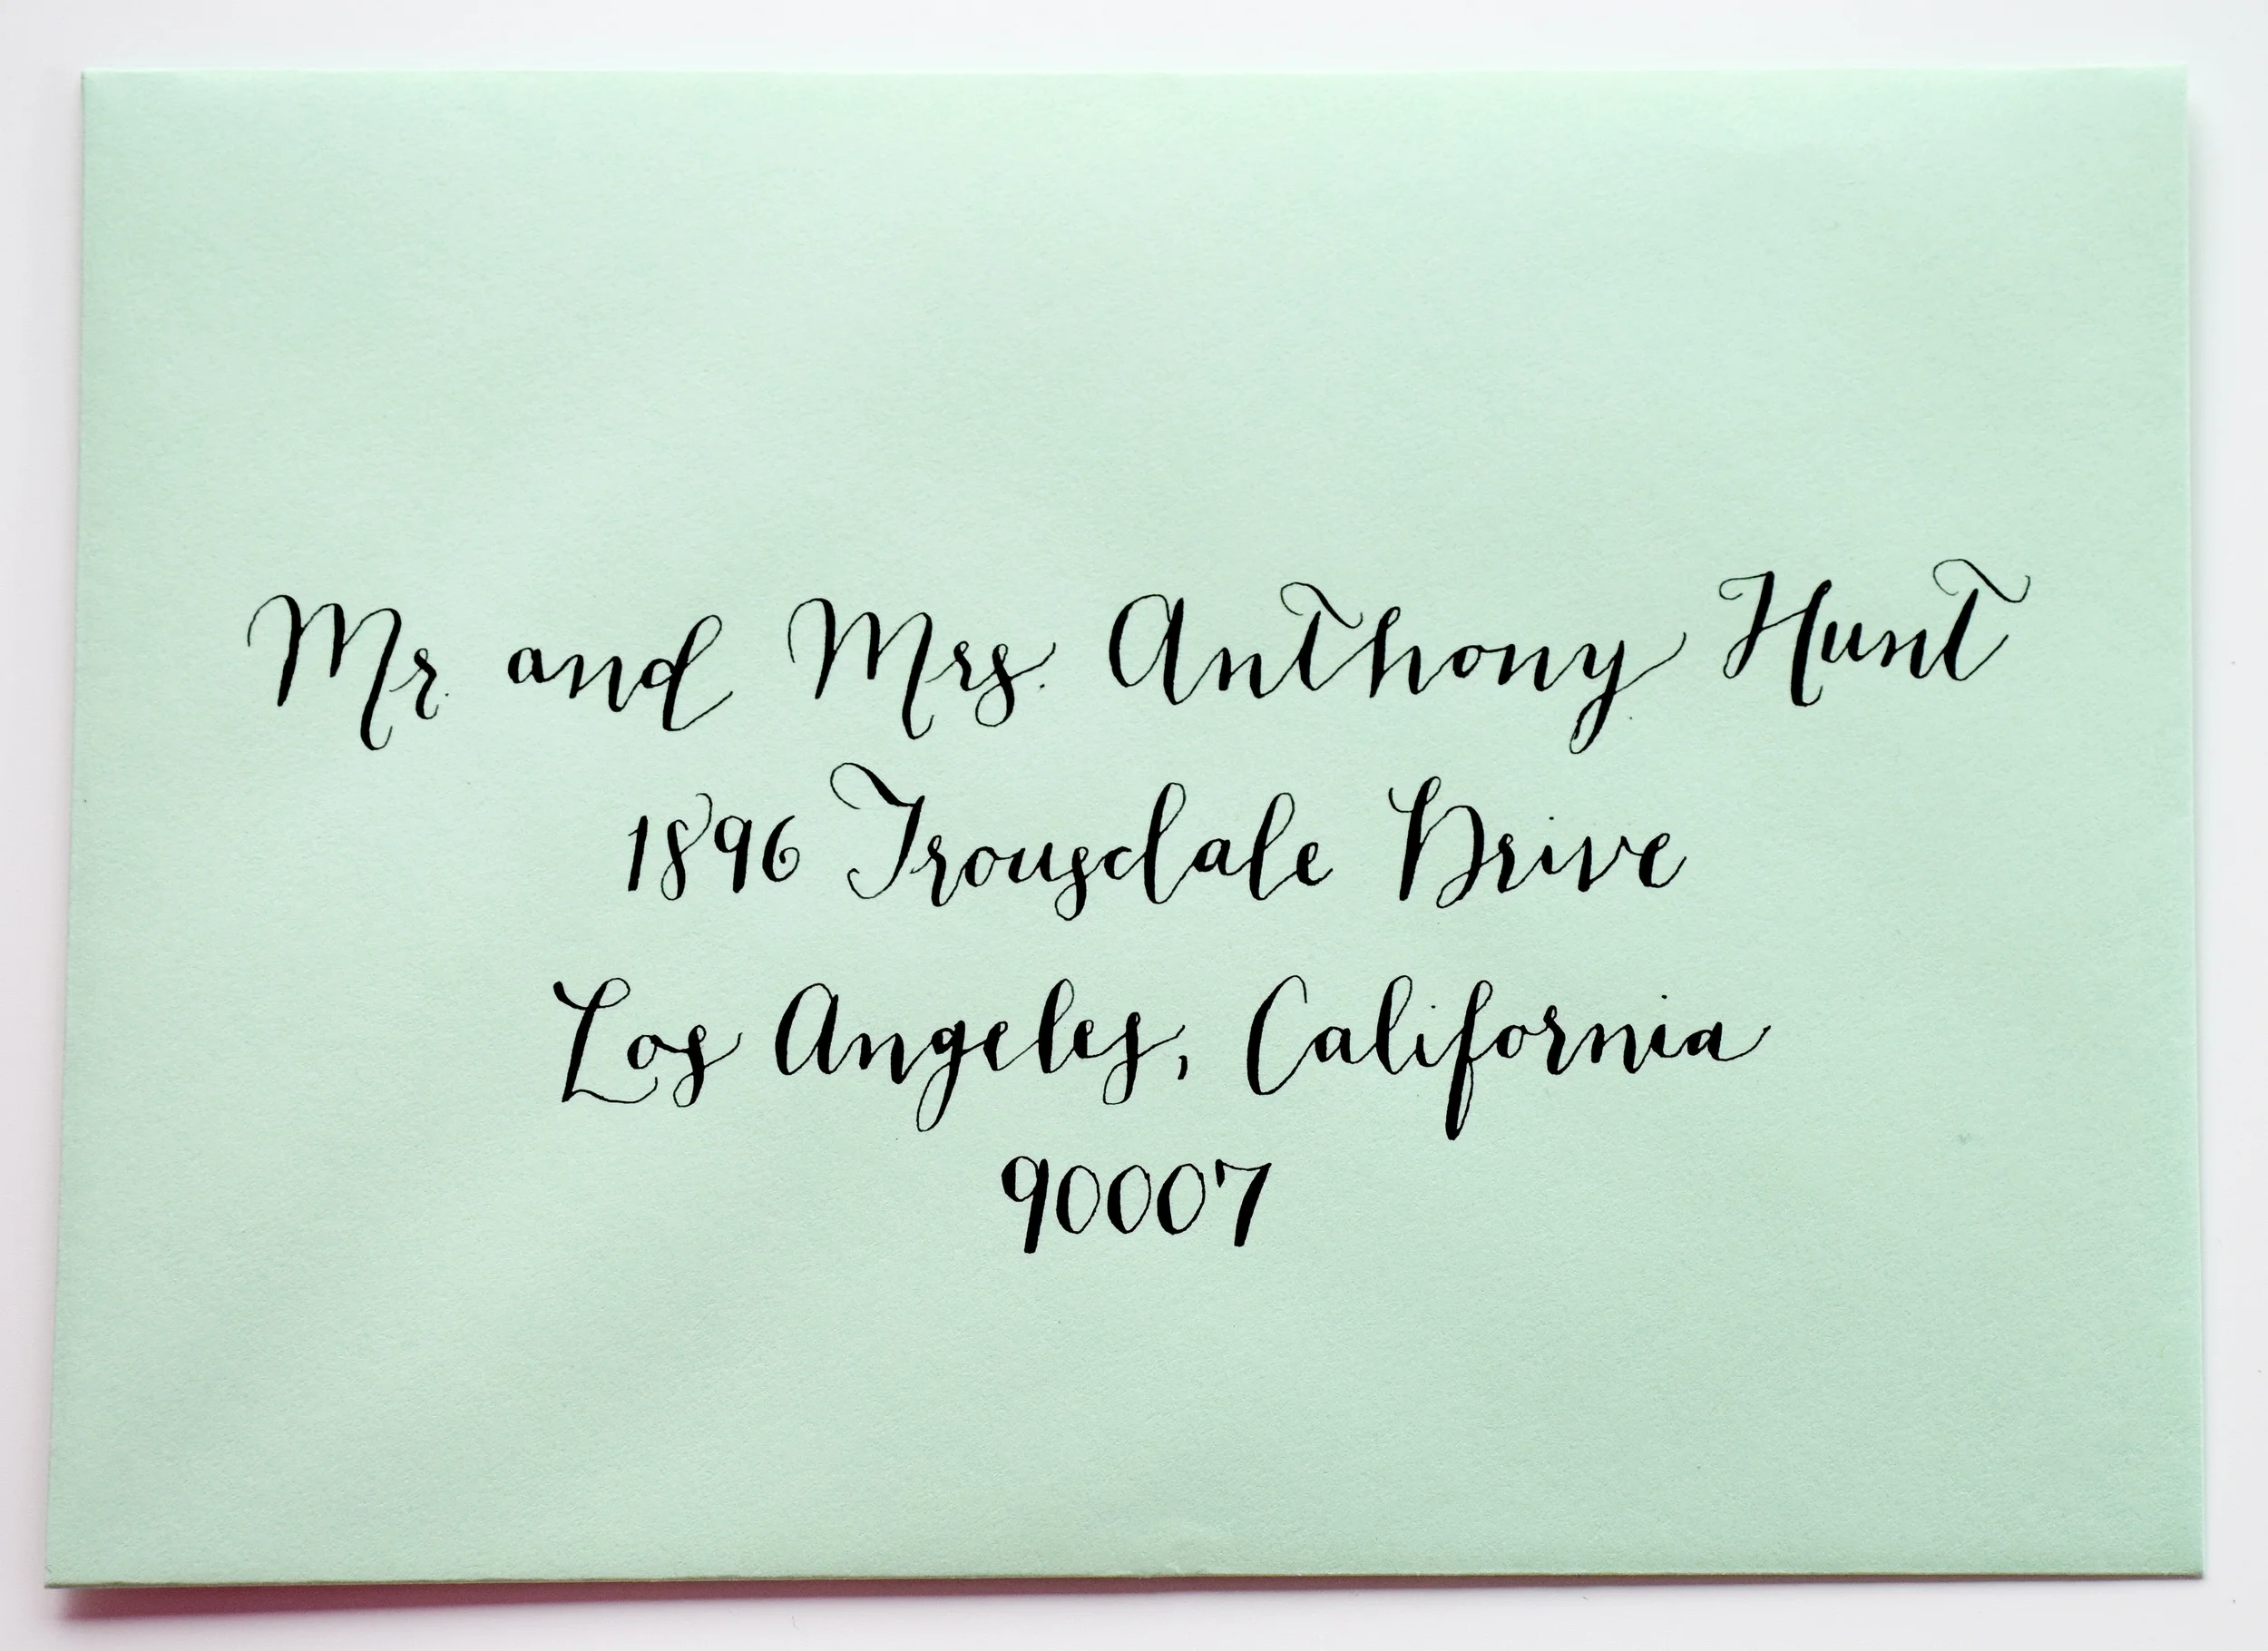 Mr. and Mrs. Anthony Hunt
1896 Trousdale Drive
Los Angeles, California
90007